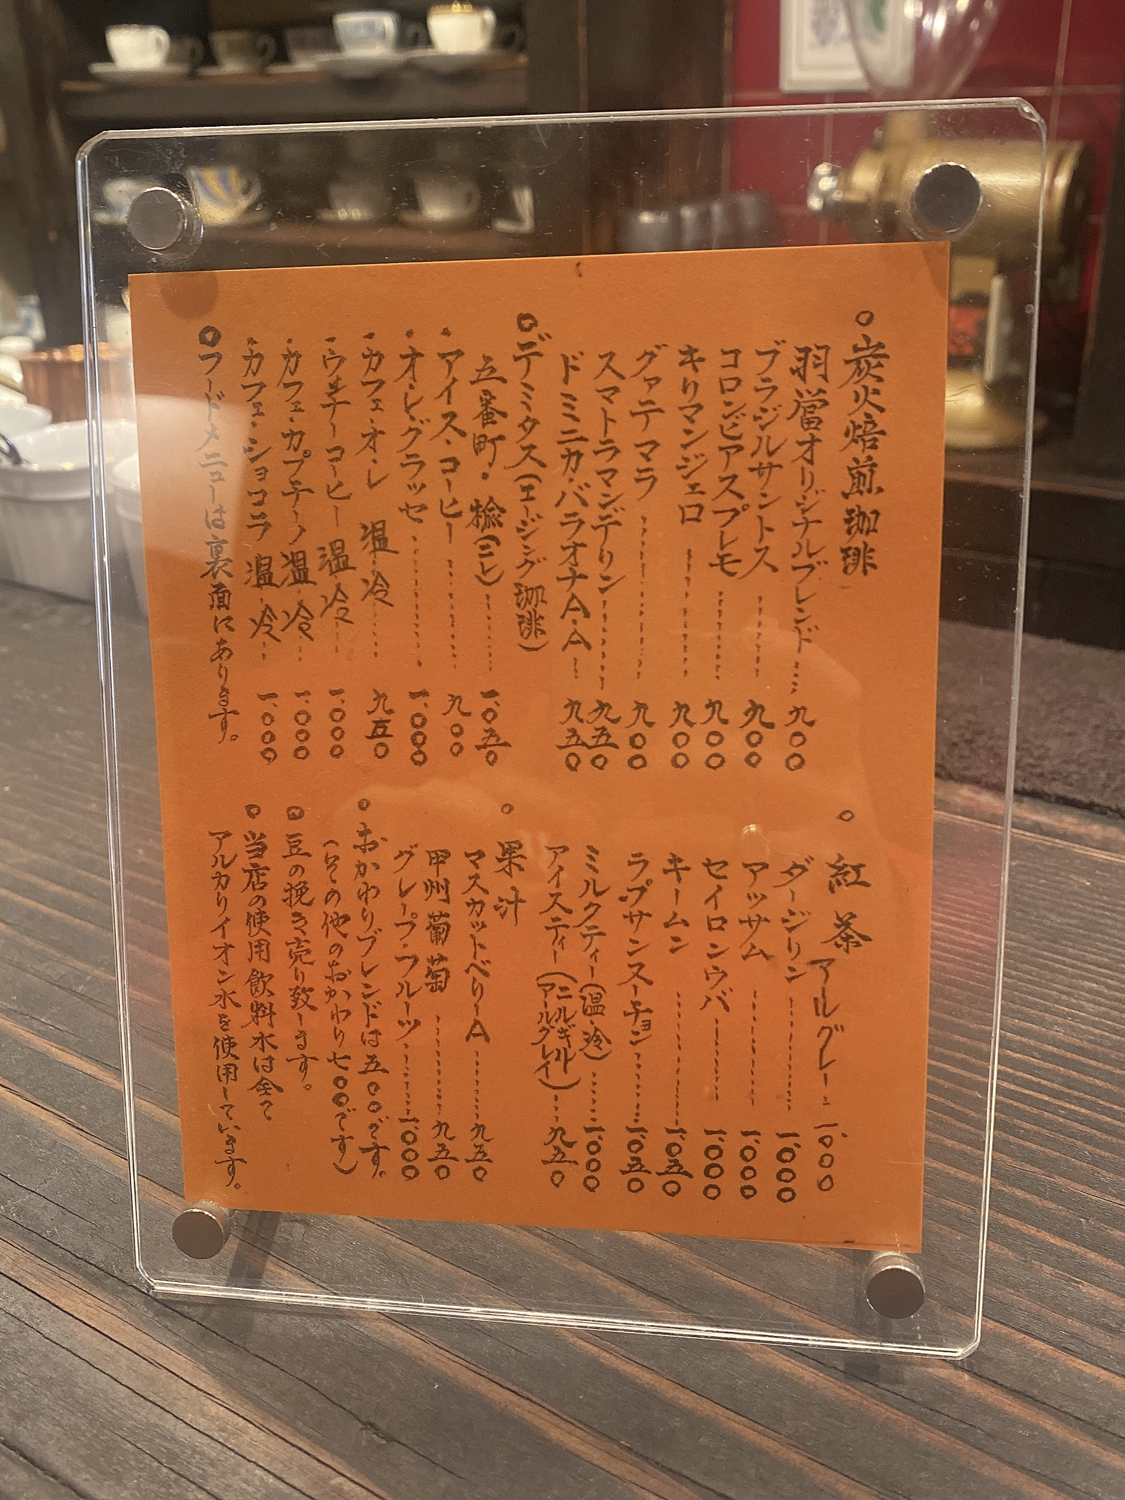 ○炭火焙煎珈琲
羽當オリジナルブレンド……九〇〇
ブラジルサントス……九〇〇
コロンビアスプレモ……九〇〇
キリマンジェロ……九〇〇
グァテマラ……九〇〇
スマトラマンデリン……九五〇
ドミニカ・バラオナA・A……九五〇
○デミタス(エージング珈琲)
五番町・楡(ニレ)……一、〇五〇
・アイス・コーヒー……九〇〇
・オ・レ・グラッセ……一、〇〇〇
・カフェ・オ・レ 温 冷……九五〇
・ウィンナーコーヒー 温 冷……一、〇〇〇
・カフェ・カプチーノ 温 冷……一、〇〇〇
・カフェ・ショコラ 温 冷……一、〇〇〇
○フードメニューは裏面にあります。
○紅茶
アールグレー……一、〇〇〇
ダージリン……一、〇〇〇
アッサム……一、〇〇〇
セイロンウバ……一、〇〇〇
キームン……一、〇五〇
ラプサンスーチョン……一、〇五〇
ミルクティー(温・冷)……一、〇〇〇
アイスティー(ニルギリ アールグレイ)……九五〇
○果汁
マスカットベリーA……九五〇
甲州葡萄……九五〇
グレープ・フルーツ……一、〇〇〇
○おかわりブレンドは五〇〇です。
(その他のおかわり七〇〇です)
○豆の挽き売り致します。
○当店の使用飲料水は全て
アルカリイオン水を使用しています。